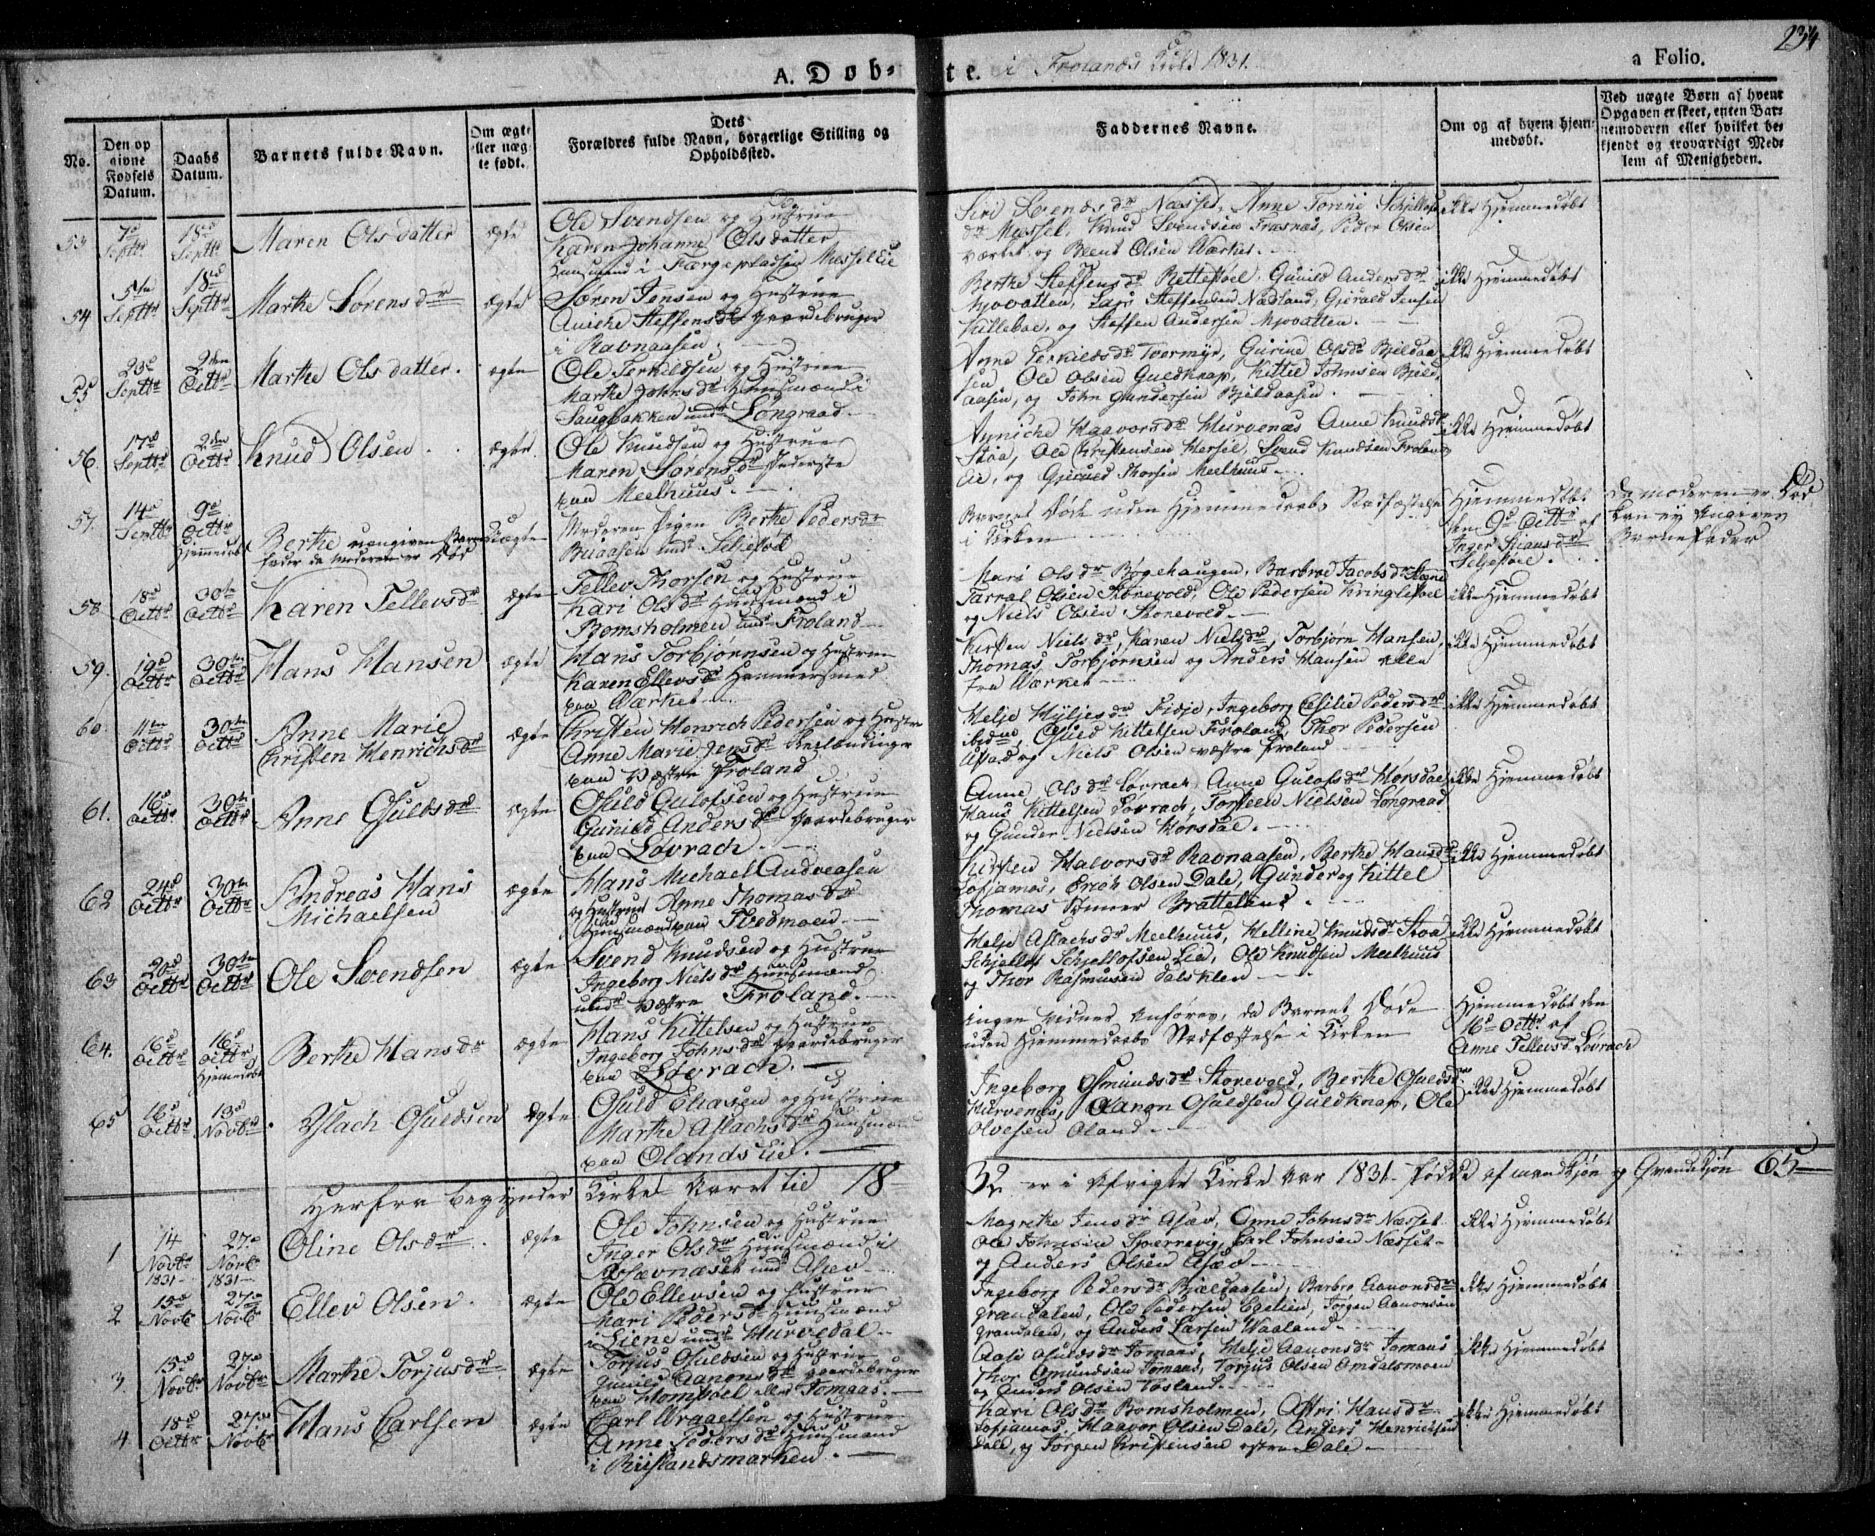 A. Døb-
te. i Frolands Kirke 1831.
234
a Folio.
No.
Den op
givne
Fødsels
Datum.
Daabs
Datum.
Barnets fulde Navn.
Om ægte
eller uæg
te født.
Dets
Forældres fulde Navn, borgerlige Stilling og
Opholdssted.
Faddernes Navne.
Om og af hvem hjem-
medøbt.
Ved uægte Børn af hvem
Opgaven er skeet, enten Bar-
nemoderen eller hvilket be-
kjendt og troværdigt Med-
lem af Menigheden.
53
7d Septbr
18d Septbr
Maren Olsdatter
ægte
Ole Svendsen og Hustrue
Karen Johanne Olsdatter
Huusmænd i Færgepladsen Messel Eie
Siri Svends dr Næsset, Anne Torine
dr Messel, Knud Svendsen Træsnæs, Peder Olsen
værket og Bent Olsen Værket.
ikke Hjemmedøbt
54
5te Septbr
18d Septbr
Marthe Sørens dr
ægte
Søren Jensen og Hustrue
Aniche Steffens dr Gaardebruger
i Ravnaasen.
Berthe Steffens dr Rettestøl, Gunild Anders dr
Mjovatten, Lars Steffensen Nædland, Gjerald Jensen
Killeboe, og Steffen Andersen Mjovatten.
ikke Hjemmedøbt
55
23d Septbr
2den Octbr
Marthe Olsdatter.
ægte
Ole Terkildsen og Hustrue
Marthe Johns dr Huusmænd i
Saugbakken undr Løngraad
Anne Terkilds dr Tvermyr, Gurine Ols dr Bjeldaa
sen, Ole Olsen Guldknap, Kittil Johnsen Bjeld
aasen, og John Gundersen Bjeldaasen.
ikke Hjemmedøbt
56.
17d Septbr
2den Octbr
Knud Olsen
ægte.
Ole Knudsen og Hustrue
Maren Sørens dr Inderste
paa Meelhuus.
Anniche Haavors dr Hurvenæs Anne Knuds dr
Stoa, Ole Christensen Messel, Svend Knudsen Froland
eie, og Gjeruld Thorsen Meelhuus.
ikke Hjemmedøbt
57.
14d Septbr
9d Octbr
Hjemmedøbt
Berthe uangiven Barne
fader da Moderen er død
Uægte
Moderen Pigen Berthe Peders dr
Buaasen undr Seljestøl
Barnet Døde uden Hjemmedaabs Stadfæstelse
i Kirken
Hjemmedøbt
den 9d Octbr af
Inger dr
Seljestøl.
da moderen er Død
kan ey Angives
Barnefader
58.
18d Octbr
30te Octbr
Karen Tellevs dr
ægte
Tellev Thorsen og Hustrue
Kari Ols dr Huusmænd i
Bomsholmen undr Froland
Mari Ols dr Bøgehaugen, Barbroe Jacobs dr
Tarral Olsen Storevold, Ole Pedersen Kringlestøl
og Niels Olsen Storevold.
ikke Hjemmedøbt
59.
19d Octbr
30te Octbr
Hans Hansen
ægte
Hans Torbjørnsen og Hustrue
Karen Ellevs dr Hammersmed
paa Værket
Kirsten Niels dr, Karen Niels dr, Torbjørn Hansen,
Thomas Torbjørnsen og Anders Hansen alle
fra Værket
ikke Hjemmedøbt
60.
11te Octbr
30te Octbr
Anne Marie
Christen Henrichs dr
ægte
Christen Henrich Pedersen og Hustr
Anne Marie Jens dr
paa Væstre Froland
Helje dr Fidje, Ingeborg Cesilie Peders dr
ibdne Osuld Kittelsen Froland, Thor Pedersen
Asad og Niels Olsen væstre Froland
ikke Hjemmedøbt
61.
16d Octbr
30te Octbr
Anne Osulds dr
ægte
Osuld Gulofsen og Hustrue
Gunild Anders dr Gaardebruger
paa Lovrach.
Anne Ols dr Lovrach, Anne Gulofs dr Hørsdal
Hans Kittelsen Lovrach, Torsteen Nielsen Løngraad
og Gunder Nielsen Hørsdal.
ikke Hjemmedøbt
62
24d Octbr
30te Octbr
Andreas Hans
Michaelsen
ægte
Hans Michael Andreasen
og Hustrue Anne Thomas dr
Huusmænd paa Tvedmoen.
Kirsten Halvors dr Ravnaasen, Berthe Hans dr
Lofjamas, Erich Olsen Dale, Gunder og Kittel
Thomas Sønner Brattelund.
ikke Hjemmedøbt
63
20d Octbr
30te Octbr
Ole Svendsen
ægte
Svend Knudsen og Hustrue
Ingeborg Niels dr Huusmænd
undr Væstre Froland.
Helje Aslachs dr Meelhuus, Helline Knuds dr Stoa
Schjellof Schjellofsen Lie, Ole Knudsen Meelhuus
og Thor Rasmussen Dalsklev
ikke Hjemmedøbt
64.
16d Octbr
16d Octbr
Hjemedøbt
Berthe Hans dr
ægte
Hans Kittelsen og Hustrue
Ingeborg Johns dr Gaardebruger
paa Lovrach.
Ingen vidner Anføres, da Barnet Døde
uden Hjemmedaabs Stadfæstelse i Kirken
Hjemmedøbt den
16d Octbr af
Anne Tellevsd Lovrach
65
16d Octbr
13d Novbr
Aslach Osuldsen
ægte
Osuld Eliasen og Hustrue
Marthe Aslachs dr Huusmænd
paa Olands Eie.
Ingeborg Osmunds dr Storevold, Berthe Osulds dr
Hurvenæs, Aanon Osuldsen Guldknap, Ole
Olvesen Oland.
ikke Hjemmedøbt
Herfra begynder Kirke Aaret til 18
32 er i Afvigte Kirke Aar 1831 fødde af mandkjøn og Qvindekjøn 65
1
14 Novbr 1831
27d Novbr 1831
Oline Ols dr
ægte
Ole Johnsen og Hustrue
Inger Ols dr Huusmænd i
Assævnæset und Asæv
Magrethe Jens dr Asæv, Anne Johns dr Næsset
Ole Johnsen Sperrevig, Carl Johnsen Næsset
og Anders Olsen Asæv
ikke Hjemmedøbt
2
15d Novbr
27d Novbr
Ellev Olsen.
ægte
Ole Ellevsen og Hustrue
Mari Peders dr Huusmænd
i Liene undr Hurvedal.
Ingeborg Peders dr Bjeldaasen, Barbro Aanons dr
grandalen, Ole Pedersen Egelien, Jørgen Aanonsen
grandalen, og Anders Larsen Waaland.
ikke Hjemmedøbt
3
15d Novbr
27d Novbr
Marthe Torjus dr
ægte
Torjus Osuldsen og Hustrue
Gunild Aanons dr Gaardebruger
paa Hompoel eller Tomaas.
Aase Osulds dr Tomaas, Helje Aanons dr Tomaas
Thor Omundsen Tomaas, Torjus Olsen Omdalsmoen
og Anders Olsen Tosland.
ikke Hjemmedøbt
4
18d Octbr
27d Novbr
Hans Carlsen
ægte
Carl Wraaelsen og Hustrue
Anne Peders dr Huusmænd
i Riislandsmarken.
Kari Ols dr Bomsholmen, Affri Hans dr
Lofjamas, Haavor Olsen Dale, Anders Henrichsen
Dale, og Jørgen Christensen østre Dale.
ikke Hjemmedøbt